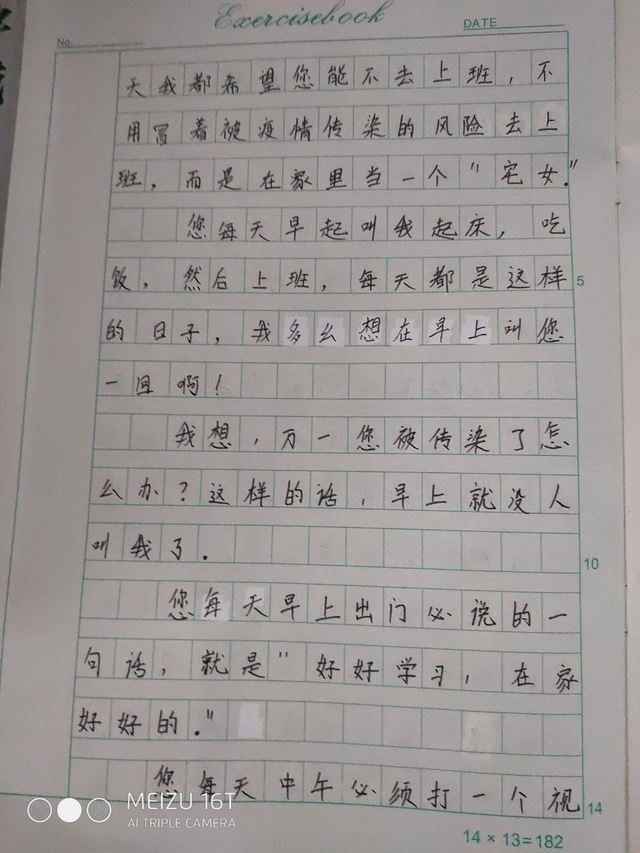 Exercisebook
No.
DATE
天我都希望您能不去上班，不
用冒着被疫情传染的风险去上
班，而是在家里当一个"宅女."
您每天早起叫我起床，吃
饭，然后上班，每天都是这样
5
的日子，我多么想在早上叫您
一回啊！
我想，万一您被传染了怎
么办？这样的话，早上就没人
叫我了.
10
您每天早上出门必说的一
句话，就是"好好学习，在家
好好的."
您每天中午必须打一个视
14
MEIZU 16T
AI TRIPLE CAMERA
14×13=182